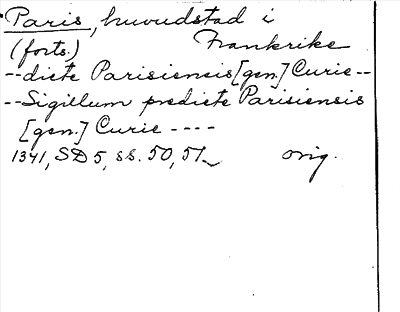 Paris, huvudstad i
(forts.) Frankrike
--dicte Parisiensis [gen.] Curie--
--Sigillum predicte Parisiensis
[gen.] Curie ----
1341, SD 5, ss. 50, 51. orig.